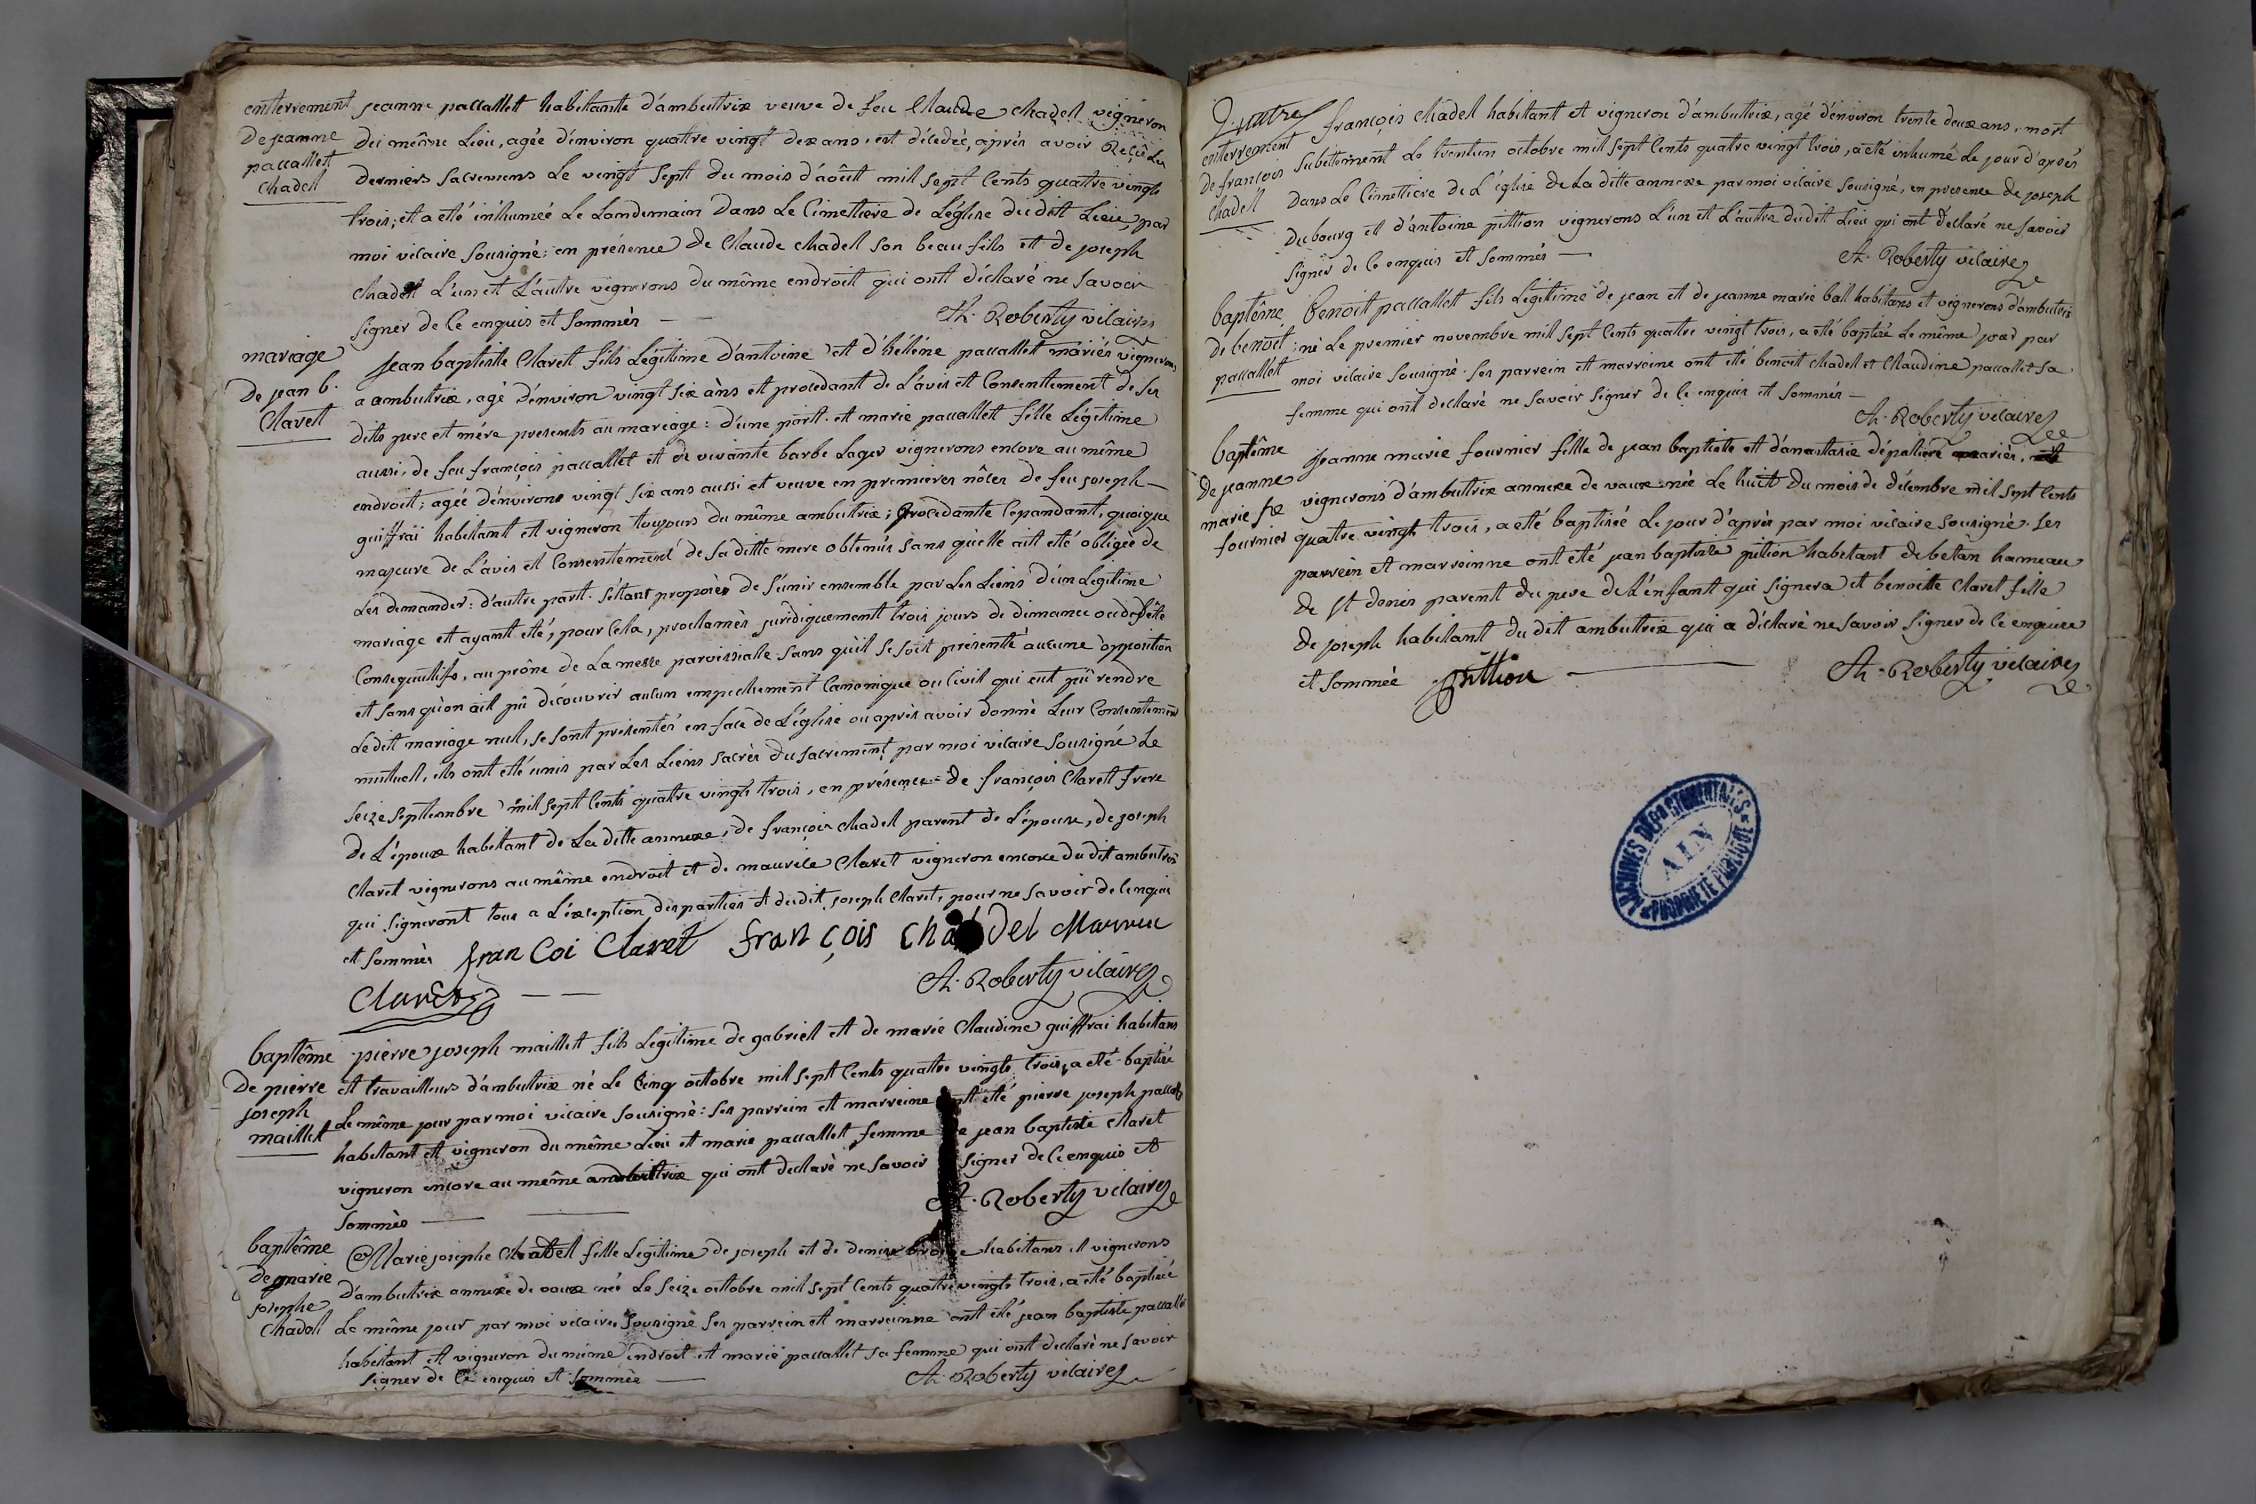 enterrement
de jeanne
pacallet
chadel
jeanne pacallet habitante d'ambutrix veuve de feu claude chadel vigneron
du même lieu, agée d'environ quatre vingt dix ans, est décedée, après avoir reçu les
derniers sacremens le vingt sept du mois d'août mil sept cents quatre vingts
trois, et a eté inhumée le landemain dans le cimetiere de l'église du dit lieu, par
moi vicaire sousigné: en présence de claude chadel son beau fils et de joseph
chadel l'un et l'autre vignerons du même endroit qui ont déclaré ne savoir
signer de ce enquis et sommés
th. Roberty vicaire
mariage
de jean b.
claret
jean baptiste claret fils légitime d'antoine et d'héléne pacallet mariés vignerons
a ambutrix, agé d'environ vingt six àns et procedant de l'avis et consentement de ses
dits pere et mére presents au mariage: d'une part. et marie pacallet fille légitime
aussi, de feu françois pacallet et de vivante barbe lager vignerons encore au même
endroit; agée d'environ vingt six ans aussi et veuve en premieres nôces de feu joseph
guiffrai habitant et vigneron toujours du même ambutrix; procedante cepandant, quoique
majeure de l'avis et consentement de sa ditte mere obtenus sans qu'elle ait eté obligée de
les demander: d'autre part. s'étant proposés de s'unir ensemble par les liens d'un légitime
mariage et ayant eté, pour cela, proclamés juridiquement trois jours de dimance ou de fête
consequutifs, au prône de la messe paroissiale sans qu'il se soit présenté aucune opposition
et sans qu'on ait pû découvrir aucun empechement canonique ou civil qui eut pû rendre
le dit mariage nul, se sont présentés en face de l'église ou après avoir donné leur consentement
mutuel, ils ont eté unis par les liens sacrés du sacrement, par moi vicaire sousigné le
seize septembre mil sept cents quatre vingts trois, en présence de françois claret frere
de l'époux habitant de la ditte annexe, de françois chadel parent de l'épouse, de joseph
claret vignerons au même endroit et de maurice claret vigneron encore du dit ambutrix
qui signeront tous a l'éxception des parties et du dit joseph claret, pour ne savoir de ce enquis
et sommés fran Coi Claret françois chadel Maurice
Claret
th. Roberty vicaire
baptême
de pierre
joseph
maillet
pierre joseph maillet fils légitime de gabriel et de marie claudine guiffrai habitans
et travailleurs d'ambutrix né le cinq octobre mil sept cents quatre vingts trois, a eté baptisé
le même jour par moi vicaire sousigné: ses parrein et marreine ont été pierre joseph pacallet
habitant et vigneron du même lieu et marie pacallet femme de jean baptiste claret
vigneron encore au même ambutrix qui ont declaré ne savoir signer de ce enquis et
sommés
th. Roberty vicaire
baptême
de marie
josephe
chadel
Marie josephe chadel fille légitime de joseph et de denise habitans et vignerons
d'ambutrix annexe de vaux née le seize octobre mil sept cents quatre vingts trois, a eté baptisée
le même jour par moi vicaire sousigné ses parrein et marreinne ont été jean baptiste pacallet
habitant et vigneron du même endroit et marie pacallet sa femme qui ont declaré ne savoir
signer de ce enquis et sommés
th. Roberty vicaire
enterrement
de françois
chadel
françois chadel habitant et vigneron d'ambutrix, agé d'environ trente deux ans, mort
subittement le trentun octobre mil sept cents quatre vingt trois, a eté inhumé le jour d'après
dans le cimettiere de l'église de la ditte annexe par moi vicaire sousigné, en presence de joseph
dubourg et d'antoine pittion vignerons l'un et l'autre du dit lieu qui ont déclaré ne savoir
signer de ce enquis et sommés
th. Roberty vicaire
baptême
de benoit
pacallet
benoit pacallet fils légitime de jean et de jeanne marie ball habitans et vignerons d'ambutrix
né le premier novembre mil sept cents quatre vingt trois, a eté baptisé le même jour par
moi vicaire sousigné ses parrein et marreine ont eté benoit chadel et claudine pacallet sa
femme qui ont declaré ne savoir signer de ce enquis et sommés
th. Roberty vicaire
baptême
de jeanne
marie fe
fournier
jeanne marie fournier fille de jean baptiste et d'anastasie mariés
vignerons d'ambutrix annexe de vaux née le huit du mois de décembre mil sept cents
quatre vingt trois, a eté baptisée le jour d'après par moi vicaire sousigné ses
parrein et marreinne ont eté jean baptiste pition habitant de betan hameau
de st denis parent du pere de l'énfant qui signera et benoitte claret fille
de joseph habitant du dit ambutrix qui a déclaré ne savoir signer de ce enquise
et sommée pittion
th. Roberty vicaire
ARCHIVES DÉPARTEMENTALES
AIN
PROPRIÉTÉ PUBLIQUE